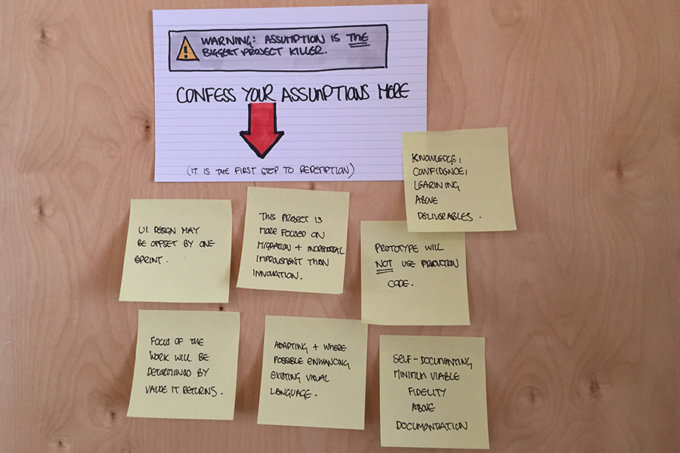 WARNING: ASSUMPTION IS THE
BIGGEST PROJECT KILLER.
CONFESS YOUR ASSUMPTIONS MORE
(IT IS THE FIRST STEP TO REDEMPTION)
KNOWLEDGE,
CONFIDENCE,
LEARNING
ABOVE
DELIVERABLES.
UI DESIGN MAY
BE OFFSET BY ONE
SPRINT.
THIS PROJECT IS
MORE FOCUSED ON
MIGRATION + INCREMENTAL
IMPROVEMENT THAN
INNOVATION.
PROTOTYPE WILL
NOT USE PRODUCTION
CODE.
FOCUS OF THE
WORK WILL BE
DETERMINED BY
VALUE IT RETURNS.
ADAPTING + WHERE
POSSIBLE ENHANCING
EXISTING VISUAL
LANGUAGE.
SELF-DOCUMENTING
MINIMUM VIABLE
FIDELITY
ABOVE
DOCUMENTATION